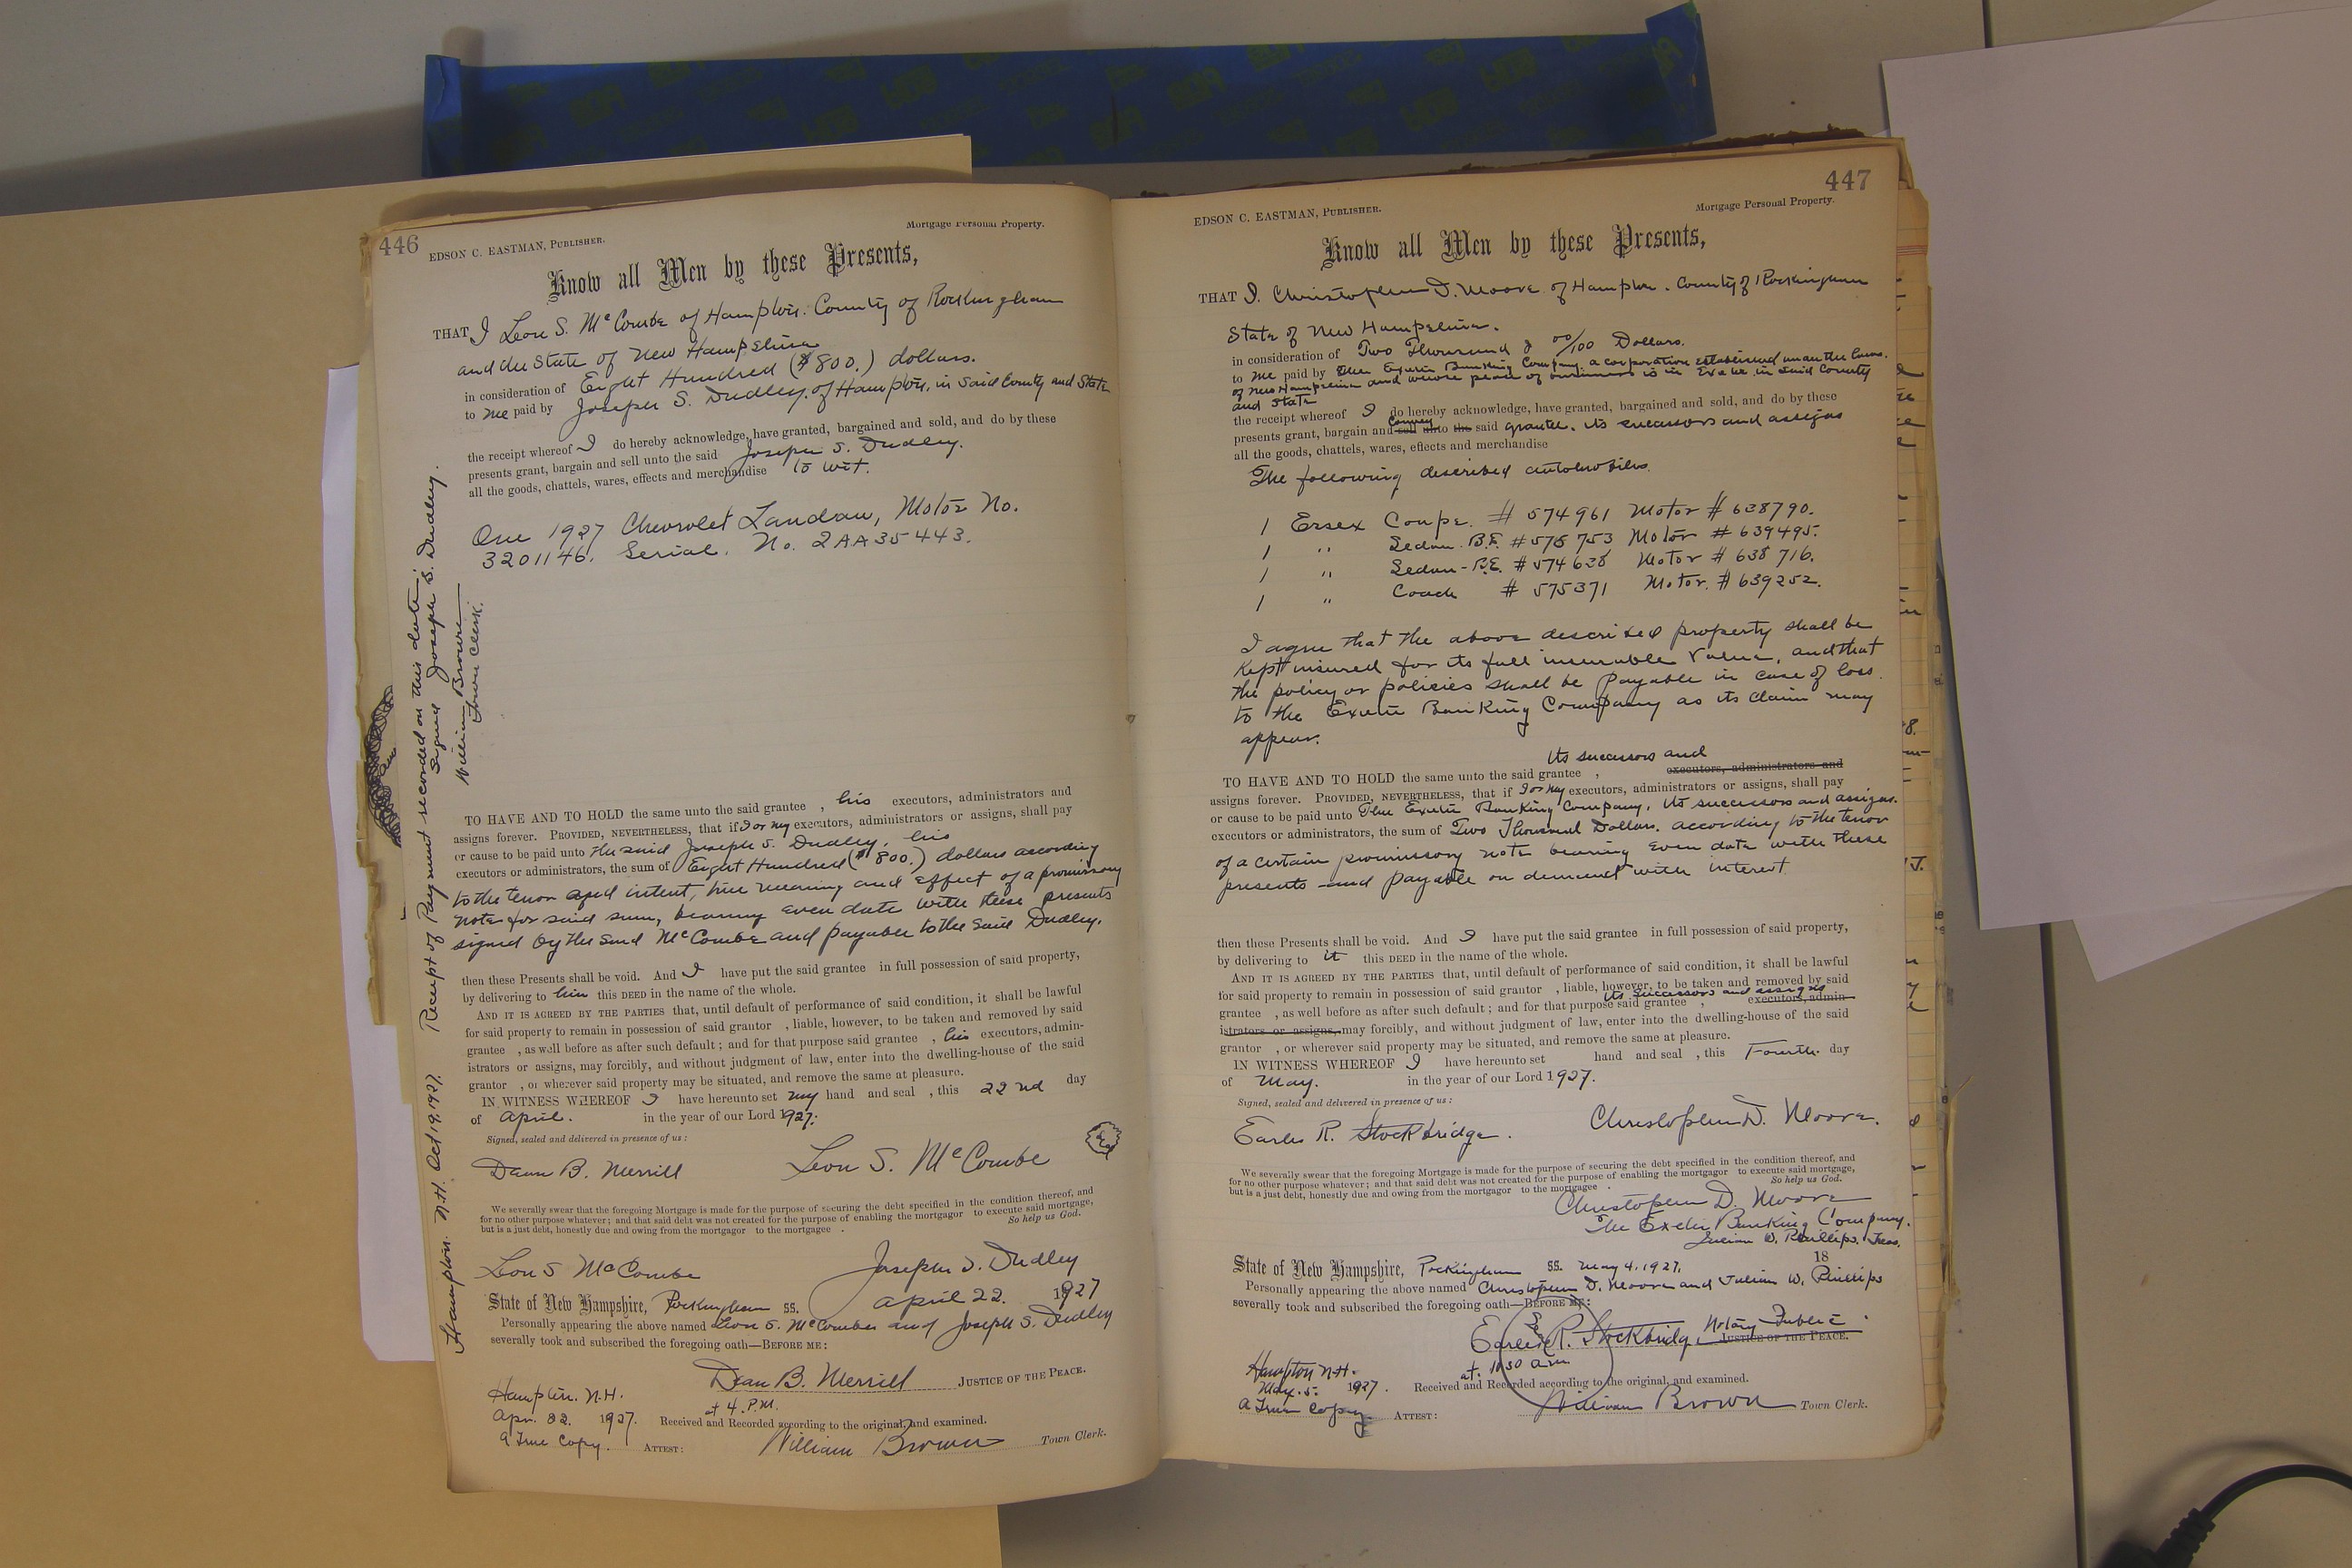 446
EDSON C. EASTMAN, PUBLISHER.
Mortgage Personal Property.
Know all Men by these Presents,
THAT I Leon S. McCombe of Hampton. County of Rockingham
and the State of New Hampshire
in consideration of Eight Hundred ($800.) dollars.
to me paid by Joseph S. Dudley, of Hampton, in said County and State
the receipt whereof I do hereby acknowledge, have granted, bargained and sold, and do by these
presents grant, bargain and sell unto the said Joseph S. Dudley.
all the goods, chattels, wares, effects and merchandise to wit.
One 1927 Chevrolet Landau, Motor No.
3201146. Serial. No. 2AA35443.
TO HAVE AND TO HOLD the same unto the said grantee , his executors, administrators and
assigns forever. PROVIDED, NEVERTHELESS, that if I or my executors, administrators or assigns, shall pay
or cause to be paid unto the said Joseph S. Dudley, his
executors or administrators, the sum of Eight Hundred ($800.) dollars according
to the tenor and intent, true meaning and effect of a promissory
note for said sum, bearing even date with these presents
signed by the said McCombe and payable to the said Dudley.
then these Presents shall be void. And I have put the said grantee in full possession of said property,
by delivering to him this DEED in the name of the whole.
AND IT IS AGREED BY THE PARTIES that, until default of performance of said condition, it shall be lawful
for said property to remain in possession of said grantor , liable, however, to be taken and removed by said
grantee , as well before as after such default ; and for that purpose said grantee , his executors, admin-
istrators or assigns, may forcibly, and without judgment of law, enter into the dwelling-house of the said
grantor , or wherever said property may be situated, and remove the same at pleasure.
IN WITNESS WHEREOF I have hereunto set my hand and seal , this 22nd day
of April. in the year of our Lord 1927.
Signed, sealed and delivered in presence of us :
Dean B. Merrill Leon S. McCombe
We severally swear that the foregoing Mortgage is made for the purpose of securing the debt specified in the condition thereof, and
for no other purpose whatever ; and that said debt was not created for the purpose of enabling the mortgagor to execute said mortgage,
but is a just debt, honestly due and owing from the mortgagor to the mortgagee . So help us God.
Leon S McCombe Joseph S. Dudley
State of New Hampshire, Rockingham SS. April 22. 1927
Personally appearing the above named Leon S. McCombe and Joseph S. Dudley
severally took and subscribed the foregoing oath—BEFORE ME :
Dean B. Merrill JUSTICE OF THE PEACE.
Hampton. N.H.
at 4. P.M.
Apr. 22. 1927. Received and Recorded according to the original, and examined.
A True Copy. ATTEST : William Brown Town Clerk.
Hampton. N.H. Oct 19, 1927. Receipt of Payment recorded on this date.
Signed Joseph S. Dudley.
William Brown
Town Clerk.
447
EDSON C. EASTMAN, PUBLISHER.
Mortgage Personal Property.
Know all Men by these Presents,
THAT I. Christopher D. Moore of Hampton. County of Rockingham
State of New Hampshire.
in consideration of Two Thousand & 00/100 Dollars.
to me paid by The Exeter Banking Company, a corporation established under the laws.
of New Hampshire and whose place of business is in Exeter in said County
and State
the receipt whereof I do hereby acknowledge, have granted, bargained and sold, and do by these
presents grant, bargain and convey sell unto the said grantee. its successors and assigns
all the goods, chattels, wares, effects and merchandise
The following described automobiles.
1 Essex Coupe. # 574961 Motor # 638790.
1 " Sedan. B.E. # 578753 Motor # 639495.
1 " Sedan - B.E. # 574628 Motor # 638716.
1 " Coach # 575371 Motor. # 639252.
I agree that the above described property shall be
kept insured for its full insurable value, and that
the policy or policies shall be payable in case of loss.
to the Exeter Banking Company as its claim may
appear.
its successors and
TO HAVE AND TO HOLD the same unto the said grantee , executors, administrators and
assigns forever. PROVIDED, NEVERTHELESS, that if I or my executors, administrators or assigns, shall pay
or cause to be paid unto The Exeter Banking Company, its successors and assigns.
executors or administrators, the sum of Two Thousand Dollars. according to the tenor
of a certain promissory note bearing even date with these
presents and payable on demand with interest.
then these Presents shall be void. And I have put the said grantee in full possession of said property,
by delivering to it this DEED in the name of the whole.
AND IT IS AGREED BY THE PARTIES that, until default of performance of said condition, it shall be lawful
for said property to remain in possession of said grantor , liable, however, to be taken and removed by said
its successors and assigns
grantee , as well before as after such default ; and for that purpose said grantee , executors, admin-
istrators or assigns, may forcibly, and without judgment of law, enter into the dwelling-house of the said
grantor , or wherever said property may be situated, and remove the same at pleasure.
IN WITNESS WHEREOF I have hereunto set hand and seal , this Fourth. day
of May. in the year of our Lord 1927.
Signed, sealed and delivered in presence of us :
Earle R. Stockbridge. Christopher D. Moore.
We severally swear that the foregoing Mortgage is made for the purpose of securing the debt specified in the condition thereof, and
for no other purpose whatever ; and that said debt was not created for the purpose of enabling the mortgagor to execute said mortgage,
but is a just debt, honestly due and owing from the mortgagor to the mortgagee . So help us God.
Christopher D. Moore
The Exeter Banking Company.
Julian W. Phillips. Treas.
State of New Hampshire, Rockingham SS. May 4, 1927. 18
Personally appearing the above named Christopher D. Moore and Julian W. Phillips
severally took and subscribed the foregoing oath—BEFORE ME :
Earle R. Stockbridge, Notary Public JUSTICE OF THE PEACE.
Hampton N.H. at. 10 30 a.m.
May. 5. 1927. Received and Recorded according to the original, and examined.
A True Copy. ATTEST : William Brown Town Clerk.